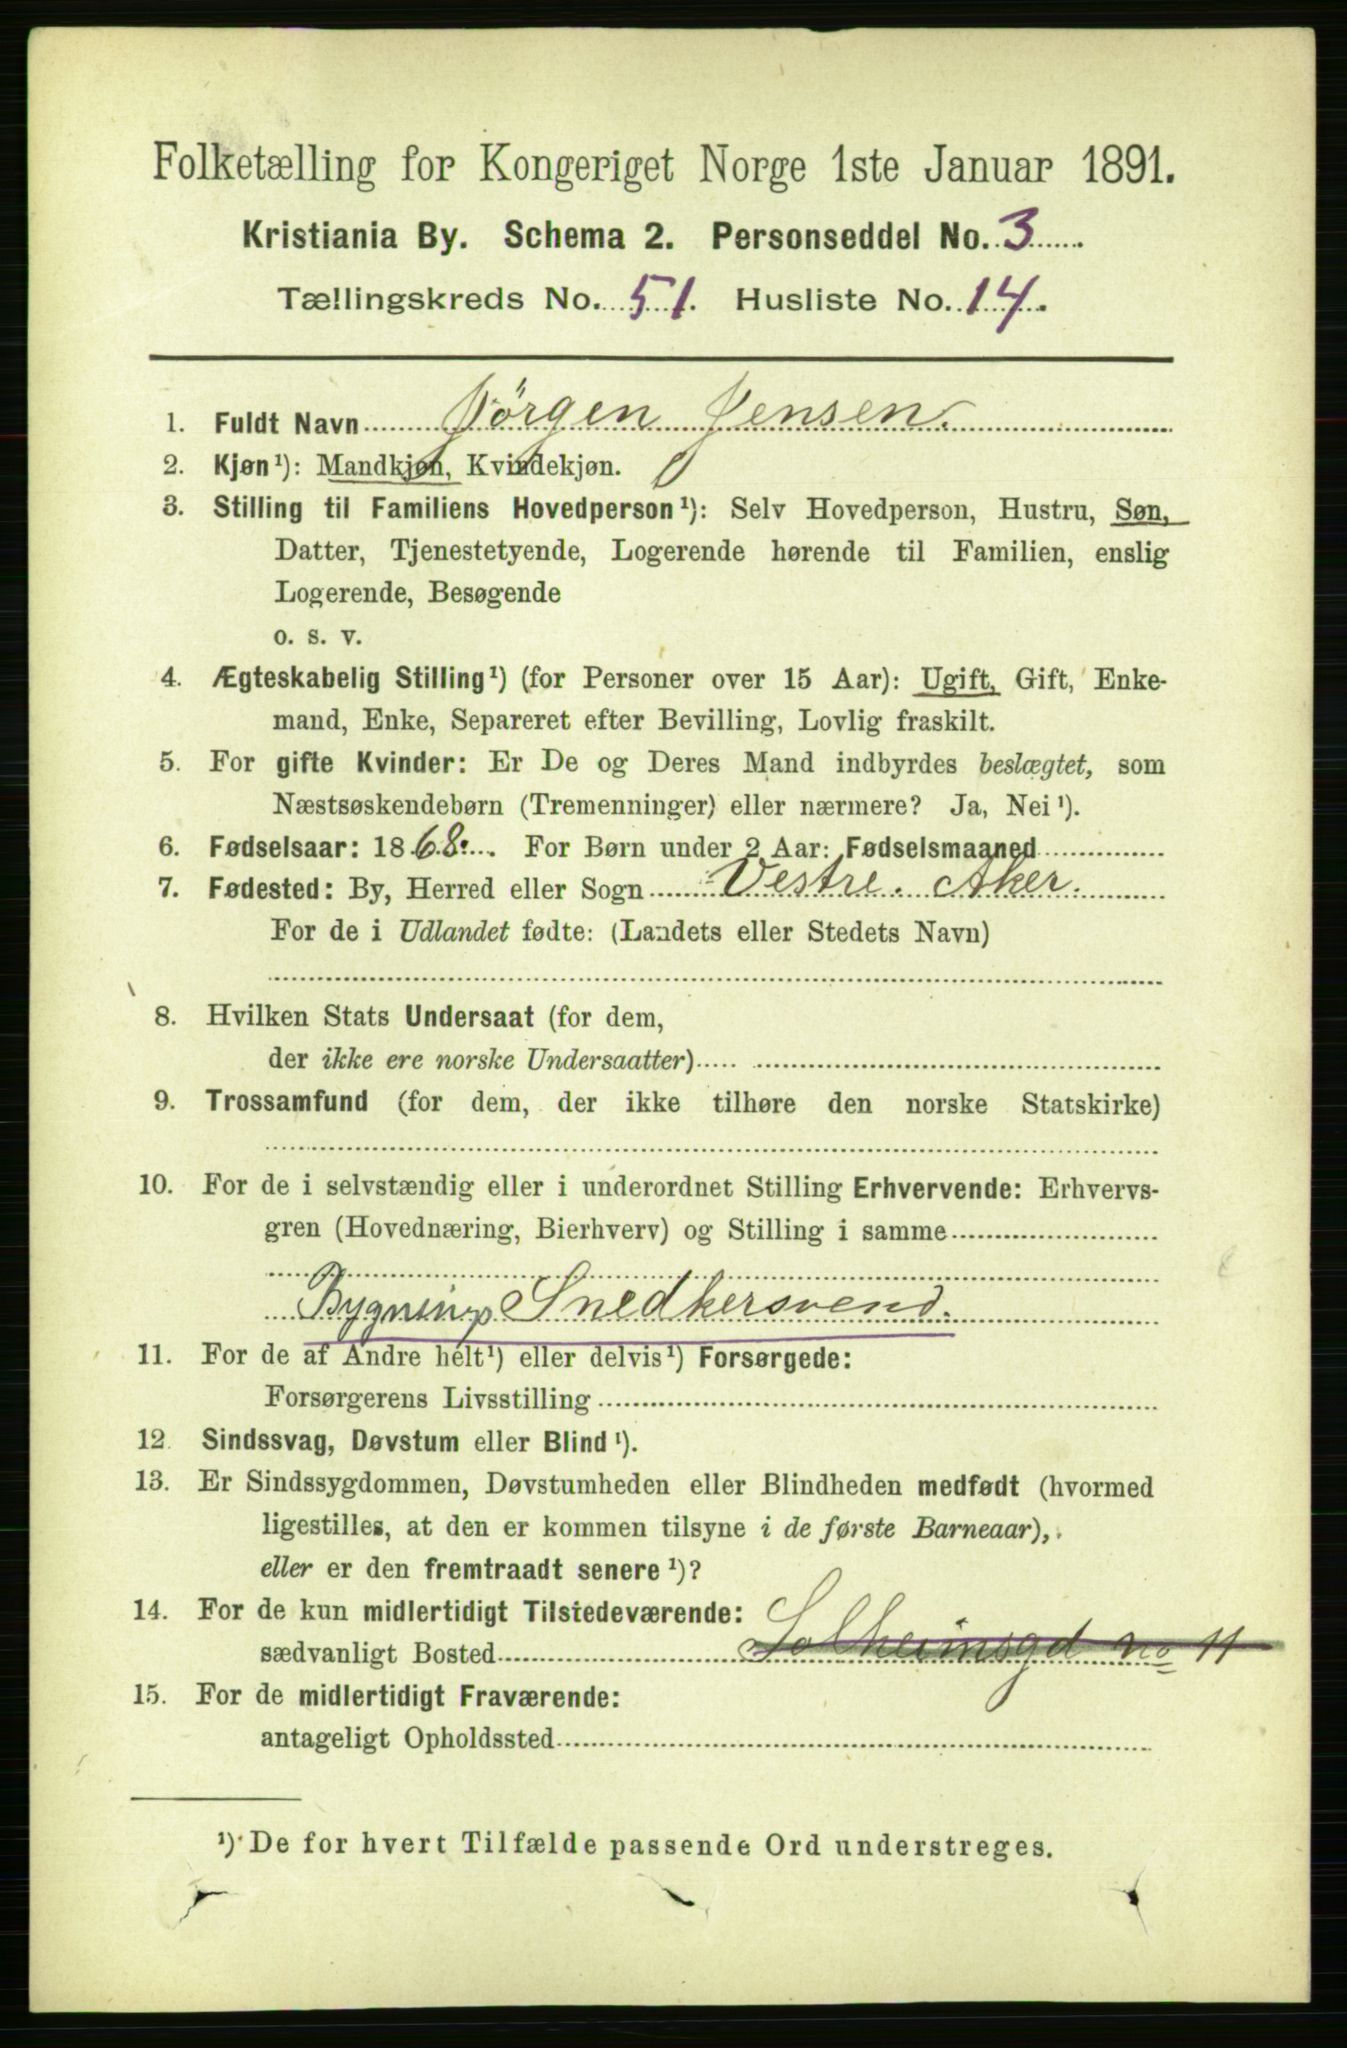 Folketælling for Kongeriget Norge 1ste Januar 1891.
Kristiania By. Schema 2. Personseddel No. 3
Tællingskreds No. 51. Husliste No. 14.
1. Fuldt Navn Jörgen Jensen.
2. Kjøn¹): Mandkjøn, Kvindekjøn.
3. Stilling til Familiens Hovedperson¹): Selv Hovedperson, Hustru, Søn,
Datter, Tjenestetyende, Logerende hørende til Familien, enslig
Logerende, Besøgende
o. s. v.
4. Ægteskabelig Stilling¹) (for Personer over 15 Aar): Ugift, Gift, Enke-
mand, Enke, Separeret efter Bevilling, Lovlig fraskilt.
5. For gifte Kvinder: Er De og Deres Mand indbyrdes beslægtet, som
Næstsøskendebørn (Tremenninger) eller nærmere? Ja, Nei¹).
6. Fødselsaar: 1868. For Børn under 2 Aar: Fødselsmaaned
7. Fødested: By, Herred eller Sogn Vestre. Aker.
For de i Udlandet fødte: (Landets eller Stedets Navn)
8. Hvilken Stats Undersaat (for dem,
der ikke ere norske Undersaatter)
9. Trossamfund (for dem, der ikke tilhøre den norske Statskirke)
10. For de i selvstændig eller i underordnet Stilling Erhvervende: Erhvervs-
gren (Hovednæring, Bierhverv) og Stilling i samme
Bygnings Snedkersvend.
11. For de af Andre helt¹) eller delvis¹) Forsørgede:
Forsørgerens Livsstilling
12. Sindssvag, Døvstum eller Blind¹).
13. Er Sindssygdommen, Døvstumheden eller Blindheden medfødt (hvormed
ligestilles, at den er kommen tilsyne i de første Barneaar),
eller er den fremtraadt senere¹)?
14. For de kun midlertidigt Tilstedeværende:
sædvanligt Bosted Solheimsgd no 11
15. For de midlertidigt Fraværende:
antageligt Opholdssted
¹) De for hvert Tilfælde passende Ord understreges.